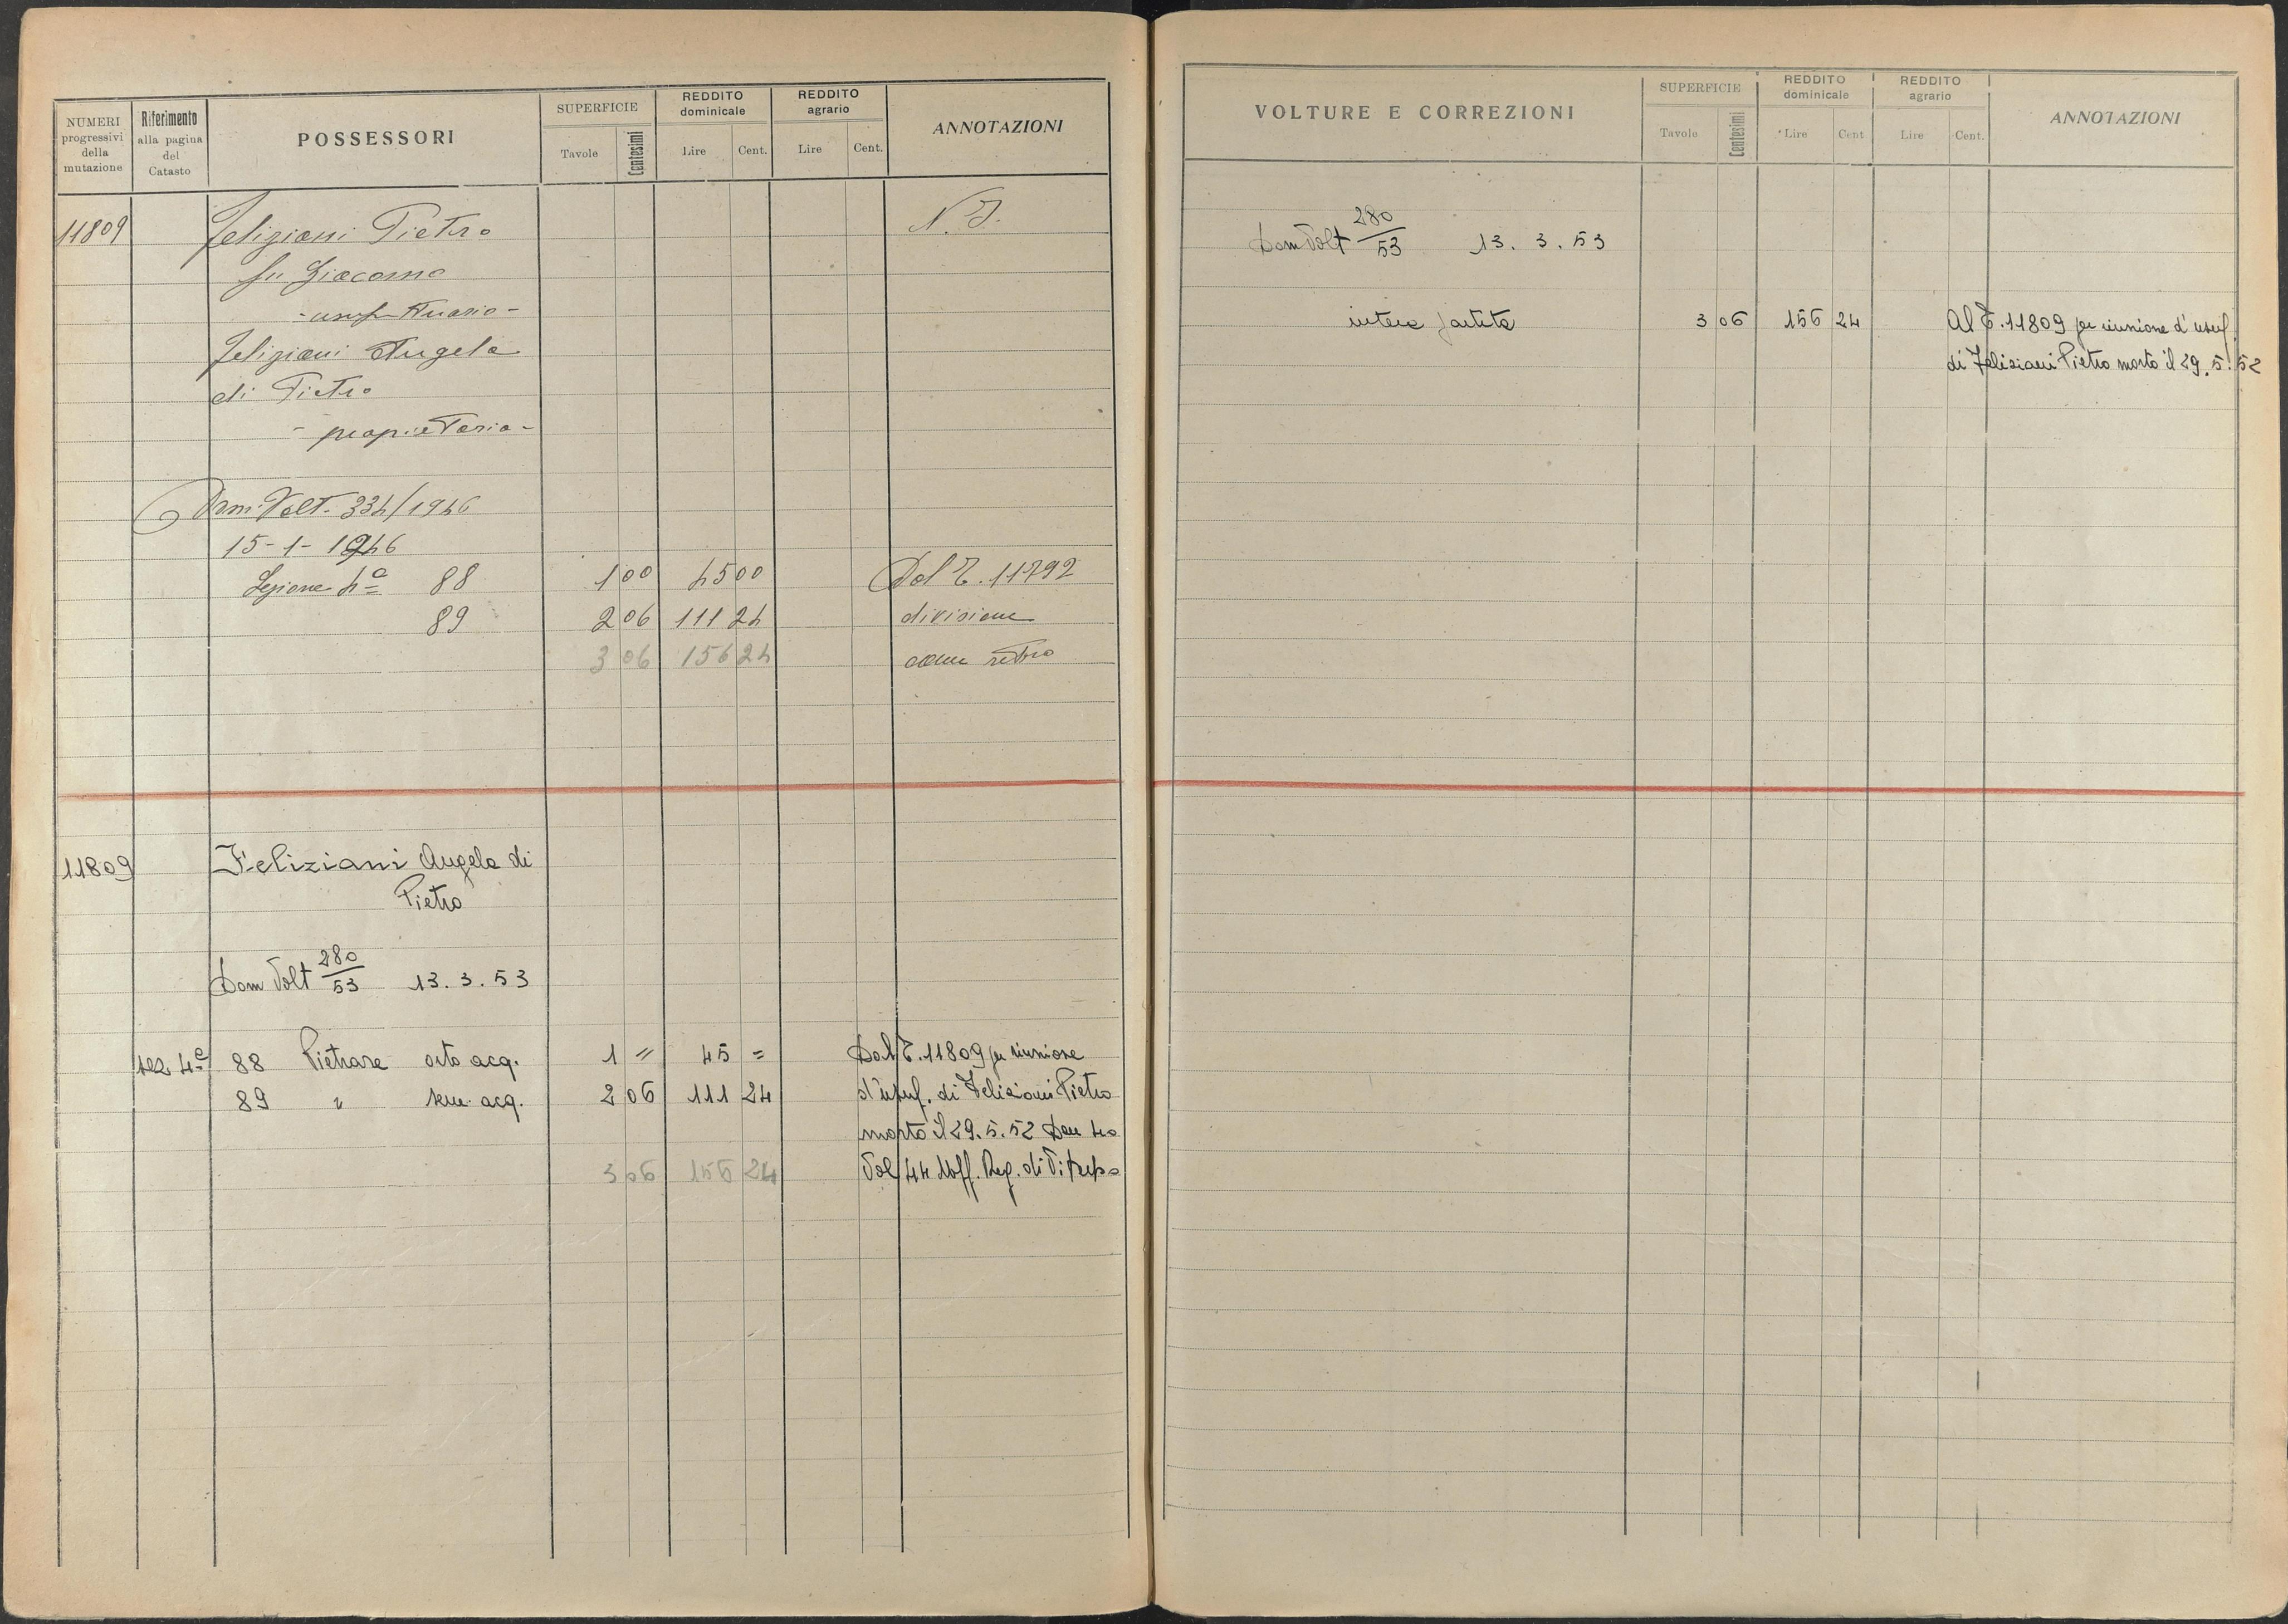 NUMERI progressivi della mutazione
Riferimento alla pagina del Catasto
POSSESSORI
SUPERFICIE
Tavole Centesimi
REDDITO dominicale
Lire Cent.
REDDITO agrario
Lire Cent.
ANNOTAZIONI
11809 Feliziani Pietro N. T.
fu Giacomo
- usufruttuario -
Feliziani Angela
di Pietro
- proprietaria -
Dom. Volt. 334/1946
15-1-1946
Sezione 4ª 88 1 00 45 00 Dal T. 11792
89 2 06 111 24 divisione
3 06 156 24 come retro
11809 Feliziani Angela di
Pietro
Dom Volt 280/53 13.3.53
sez 4ª 88 Pietrare orto acq. 1 " 45 = Dal T. 11809 per riunione
89 " sem. acq. 2 06 111 24 d'usuf. di Feliziani Pietro
morto il 29.5.52 Den
3 06 156 24 Vol 44 Uff. Reg. di Viterbo
VOLTURE E CORREZIONI
SUPERFICIE
Tavole Centesimi
REDDITO dominicale
Lire Cent
REDDITO agrario
Lire Cent.
ANNOTAZIONI
Dom Volt 280/53 13.3.53
intera partita 3 06 156 24 Al T. 11809 per riunione d'usuf.
di Feliziani Pietro morto il 29.5.52